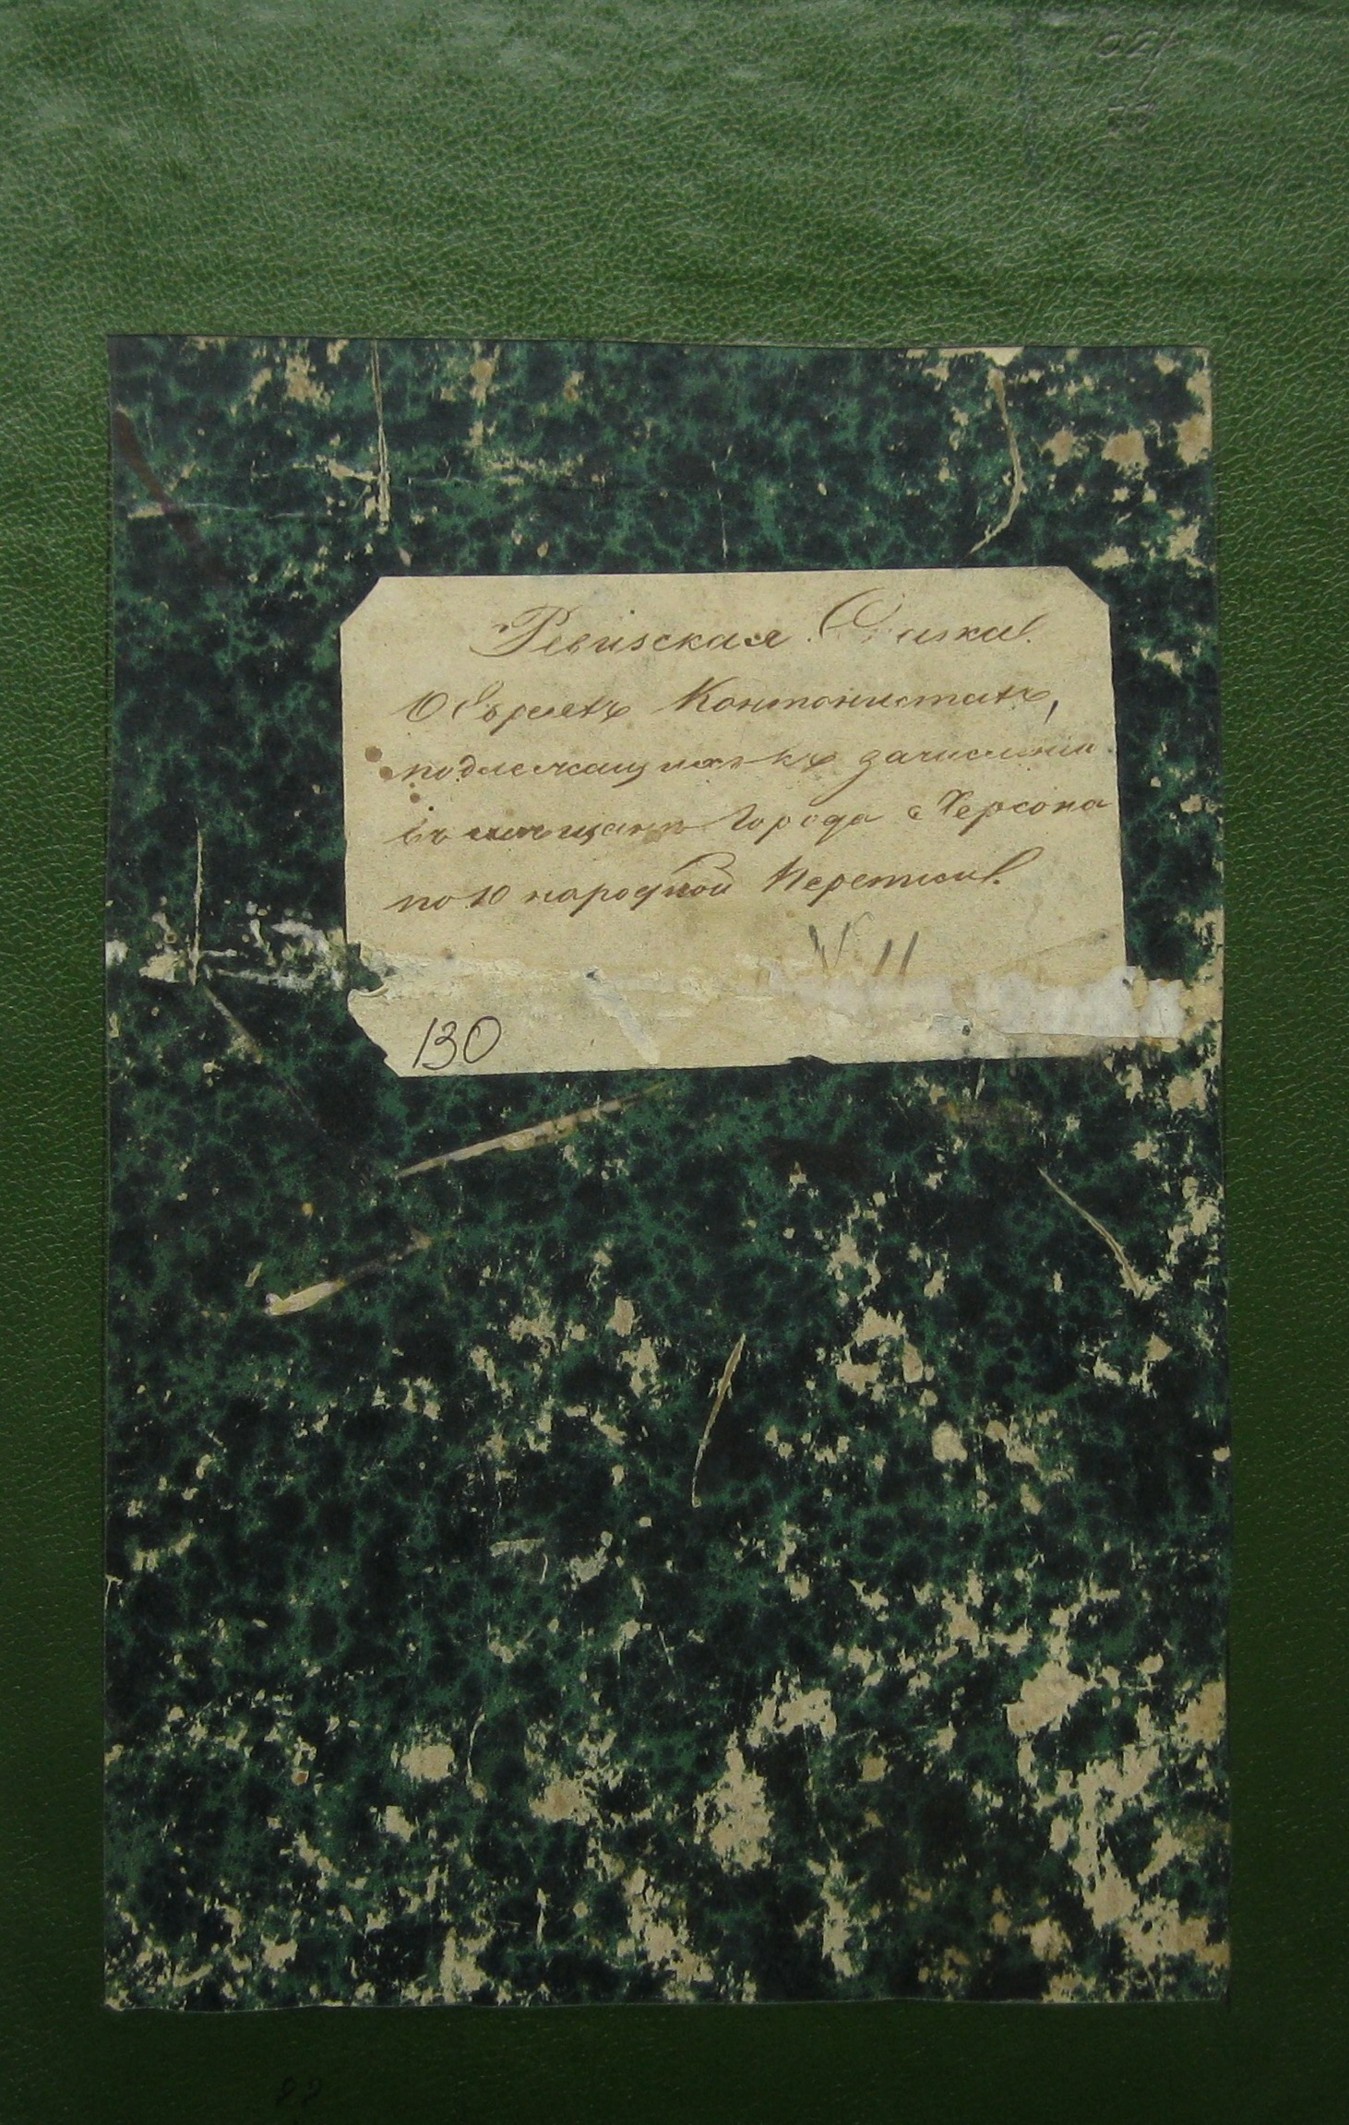 Ревизская Сказка
О Евреяхъ Кантонистахъ,
подлежащихъ къ зачислению
въ мещане Города Херсона
по 10 народной Переписи.
N. 11
130